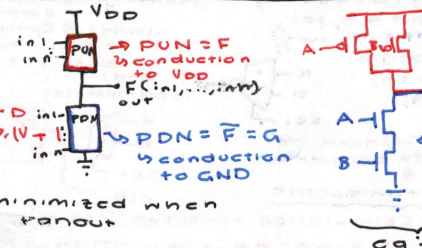 VDD
in1
inn
PUN
→ PUN = F
↳ conduction
to VDD
F(in1,...,inn)
out
in1
inn
PDN
→ PDN = F̅ = G
↳ conduction
to GND
minimized when
fanout
A
B
A
B